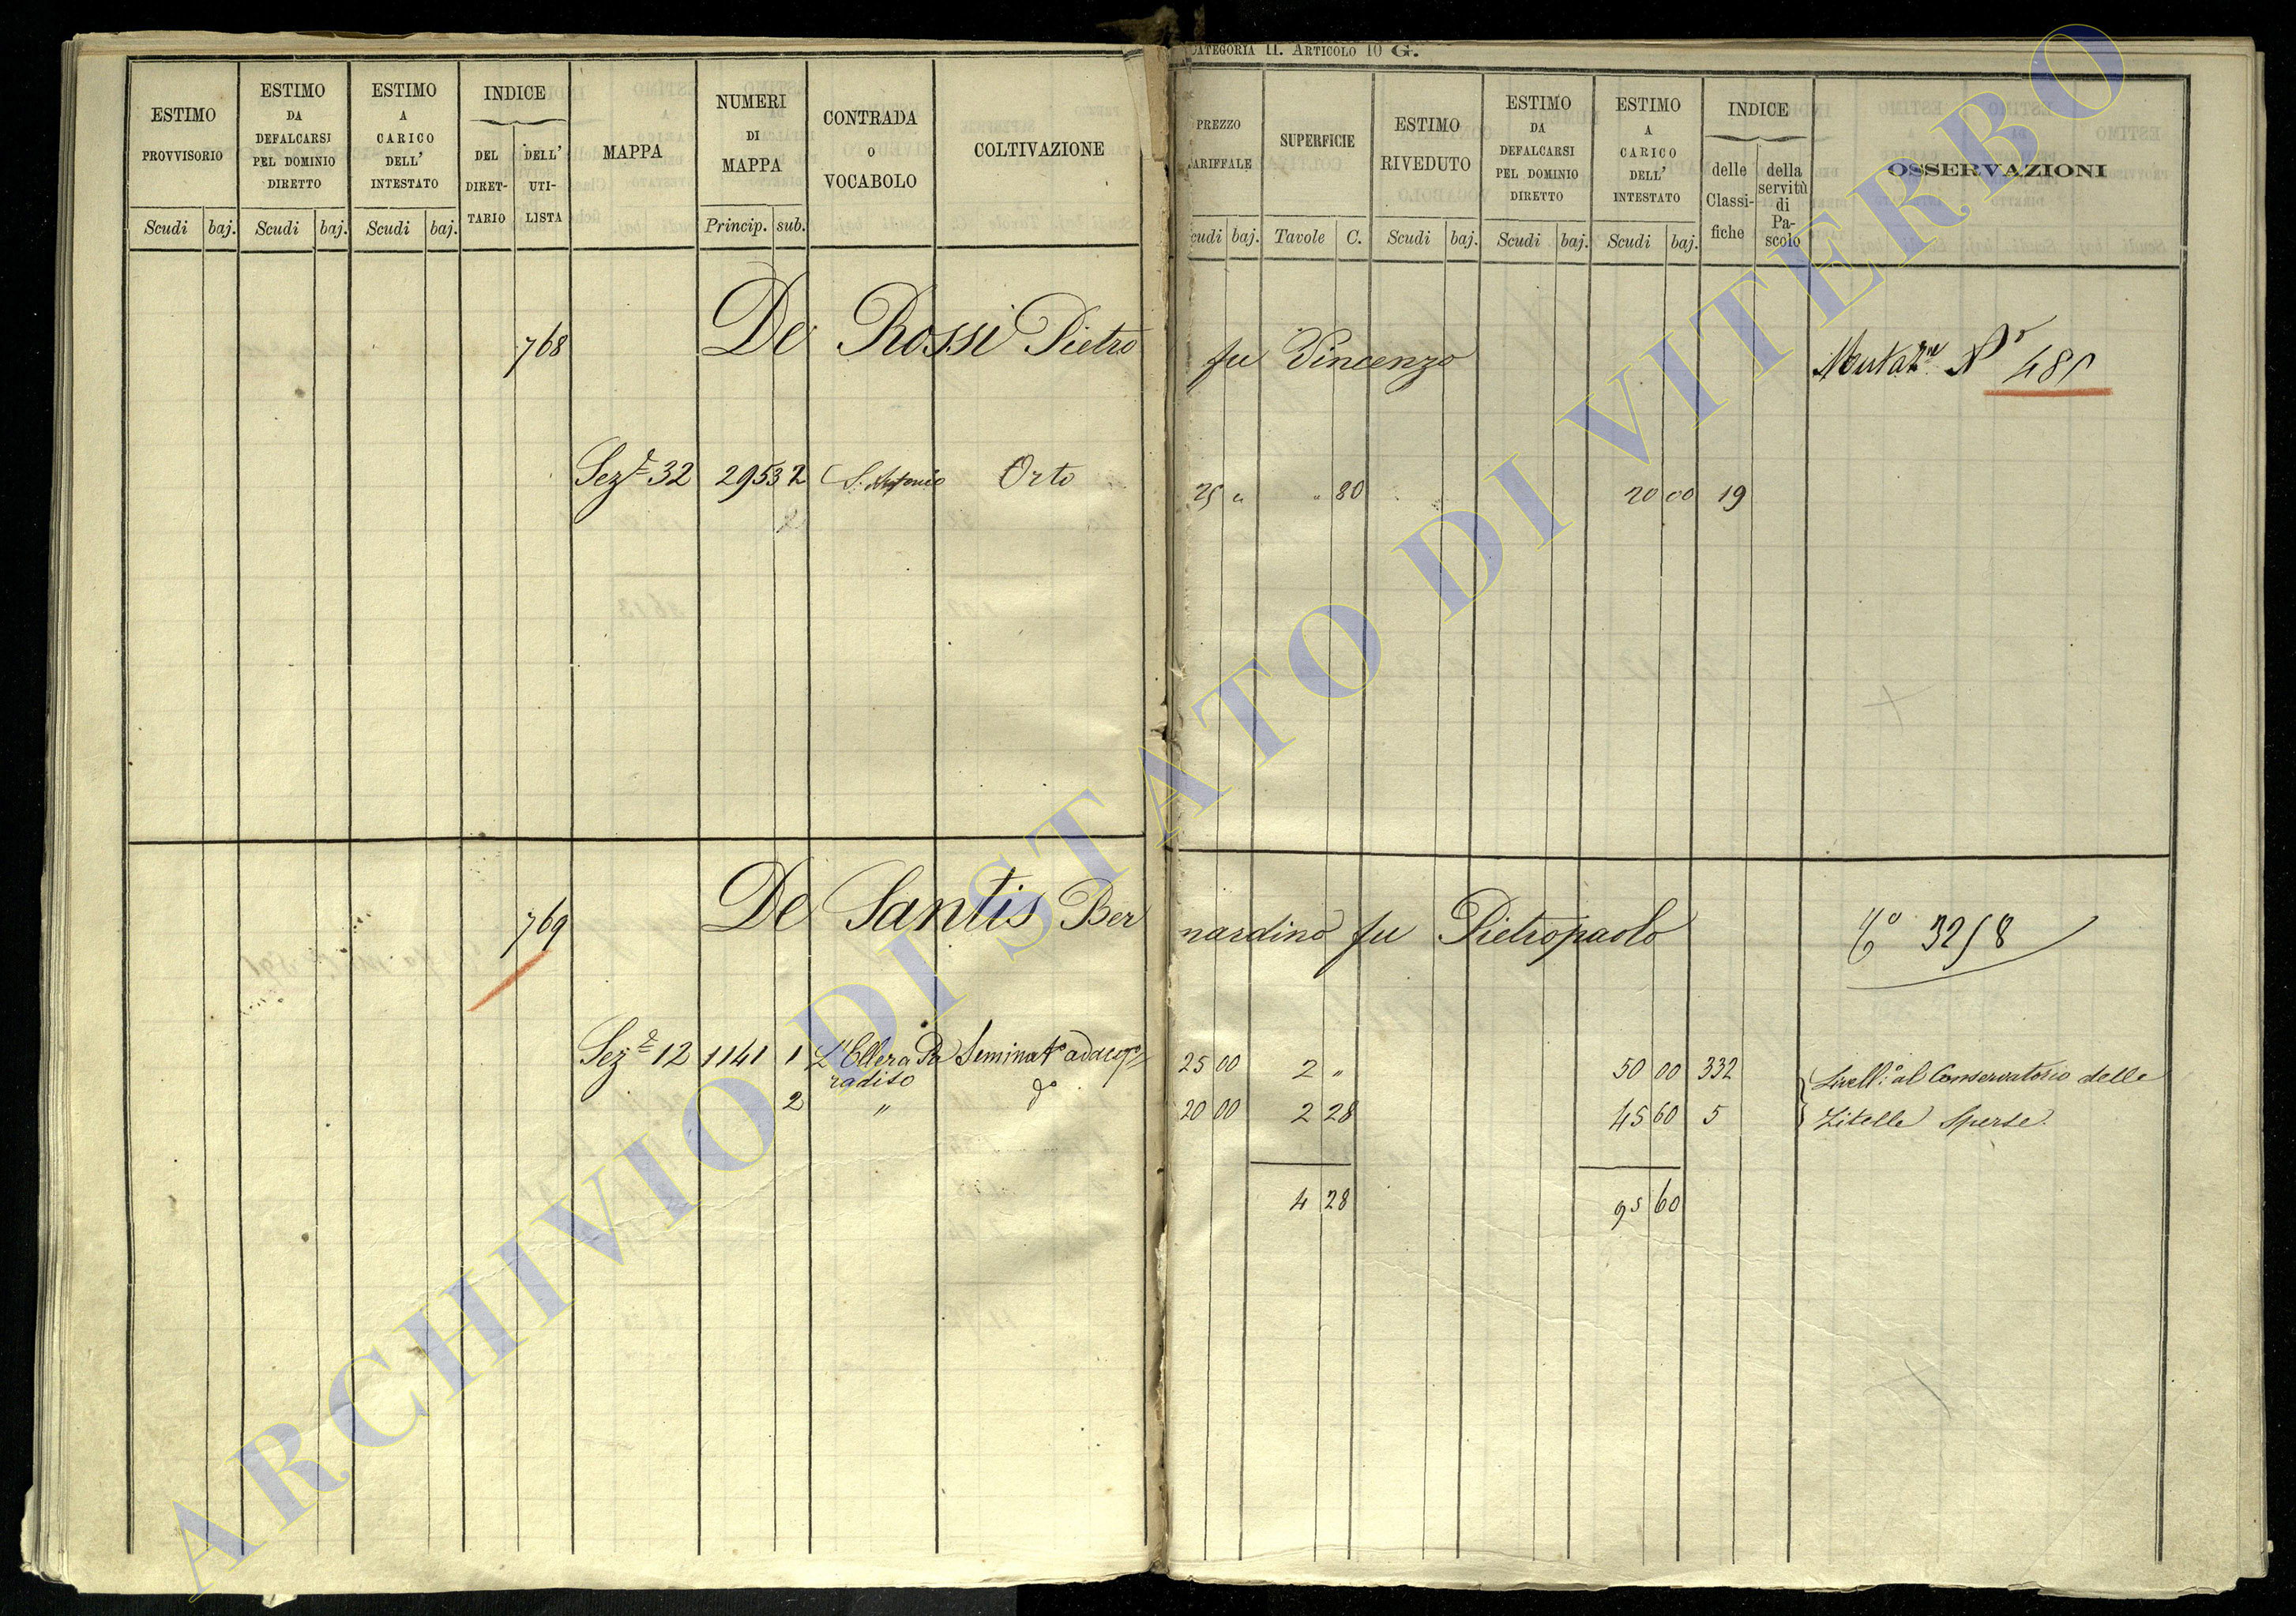 CATEGORIA II. ARTICOLO 10 G.
ESTIMO PROVVISORIO
Scudi baj.
ESTIMO DA DEFALCARSI PEL DOMINIO DIRETTO
Scudi baj.
ESTIMO A CARICO DELL' INTESTATO
Scudi baj.
INDICE
DEL DIRET-TARIO
DELL' UTI-LISTA
MAPPA
NUMERI DI MAPPA
Princip. sub.
CONTRADA O VOCABOLO
COLTIVAZIONE
PREZZO
ARIFFALE
cudi baj.
SUPERFICIE
Tavole C.
ESTIMO RIVEDUTO
Scudi baj.
ESTIMO DA DEFALCARSI PEL DOMINIO DIRETTO
Scudi baj.
ESTIMO A CARICO DELL' INTESTATO
Scudi baj.
INDICE
delle Classi-fiche
della servitù di Pa-scolo
OSSERVAZIONI
768 De Rossi Pietro fu Vincenzo
Sez.e 32 2953 2 S. Antonio Orto 25 " " 80 20 00 19
769 De Santis Ber nardino fu Pietropaolo
Sez.e 12 1141 1 L'Ellera Pa Seminat.o adacq.o 25 00 2 " 50 00 332 Livell:o al Conservatorio delle
radiso
2 " do 20 00 2 28 45 60 5 Zitelle Sperse.
4 28 95 60
ARCHIVIO DI STATO DI VITERBO